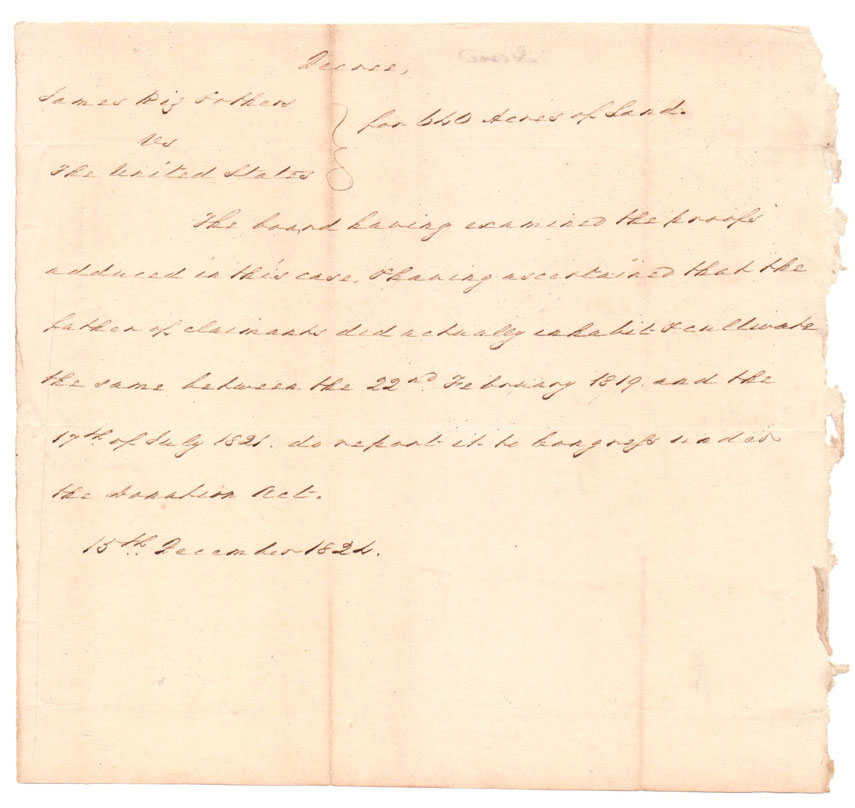 Decree,
James Riz & others
vs
The United States
for 640 Acres of Land.
The board having examined the proofs
adduced in this case, & having ascertained that the
father of claimants did actually inhabit & cultivate
the same between the 22nd February 1819. and the
17th of July 1821. do report it to Congress under
the Donation Act.
15th. December 1824.